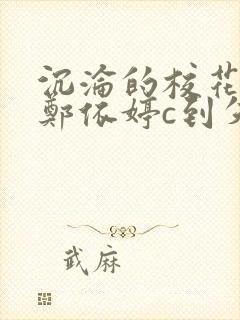 沉沦的校花
郑依婷c到
武麻